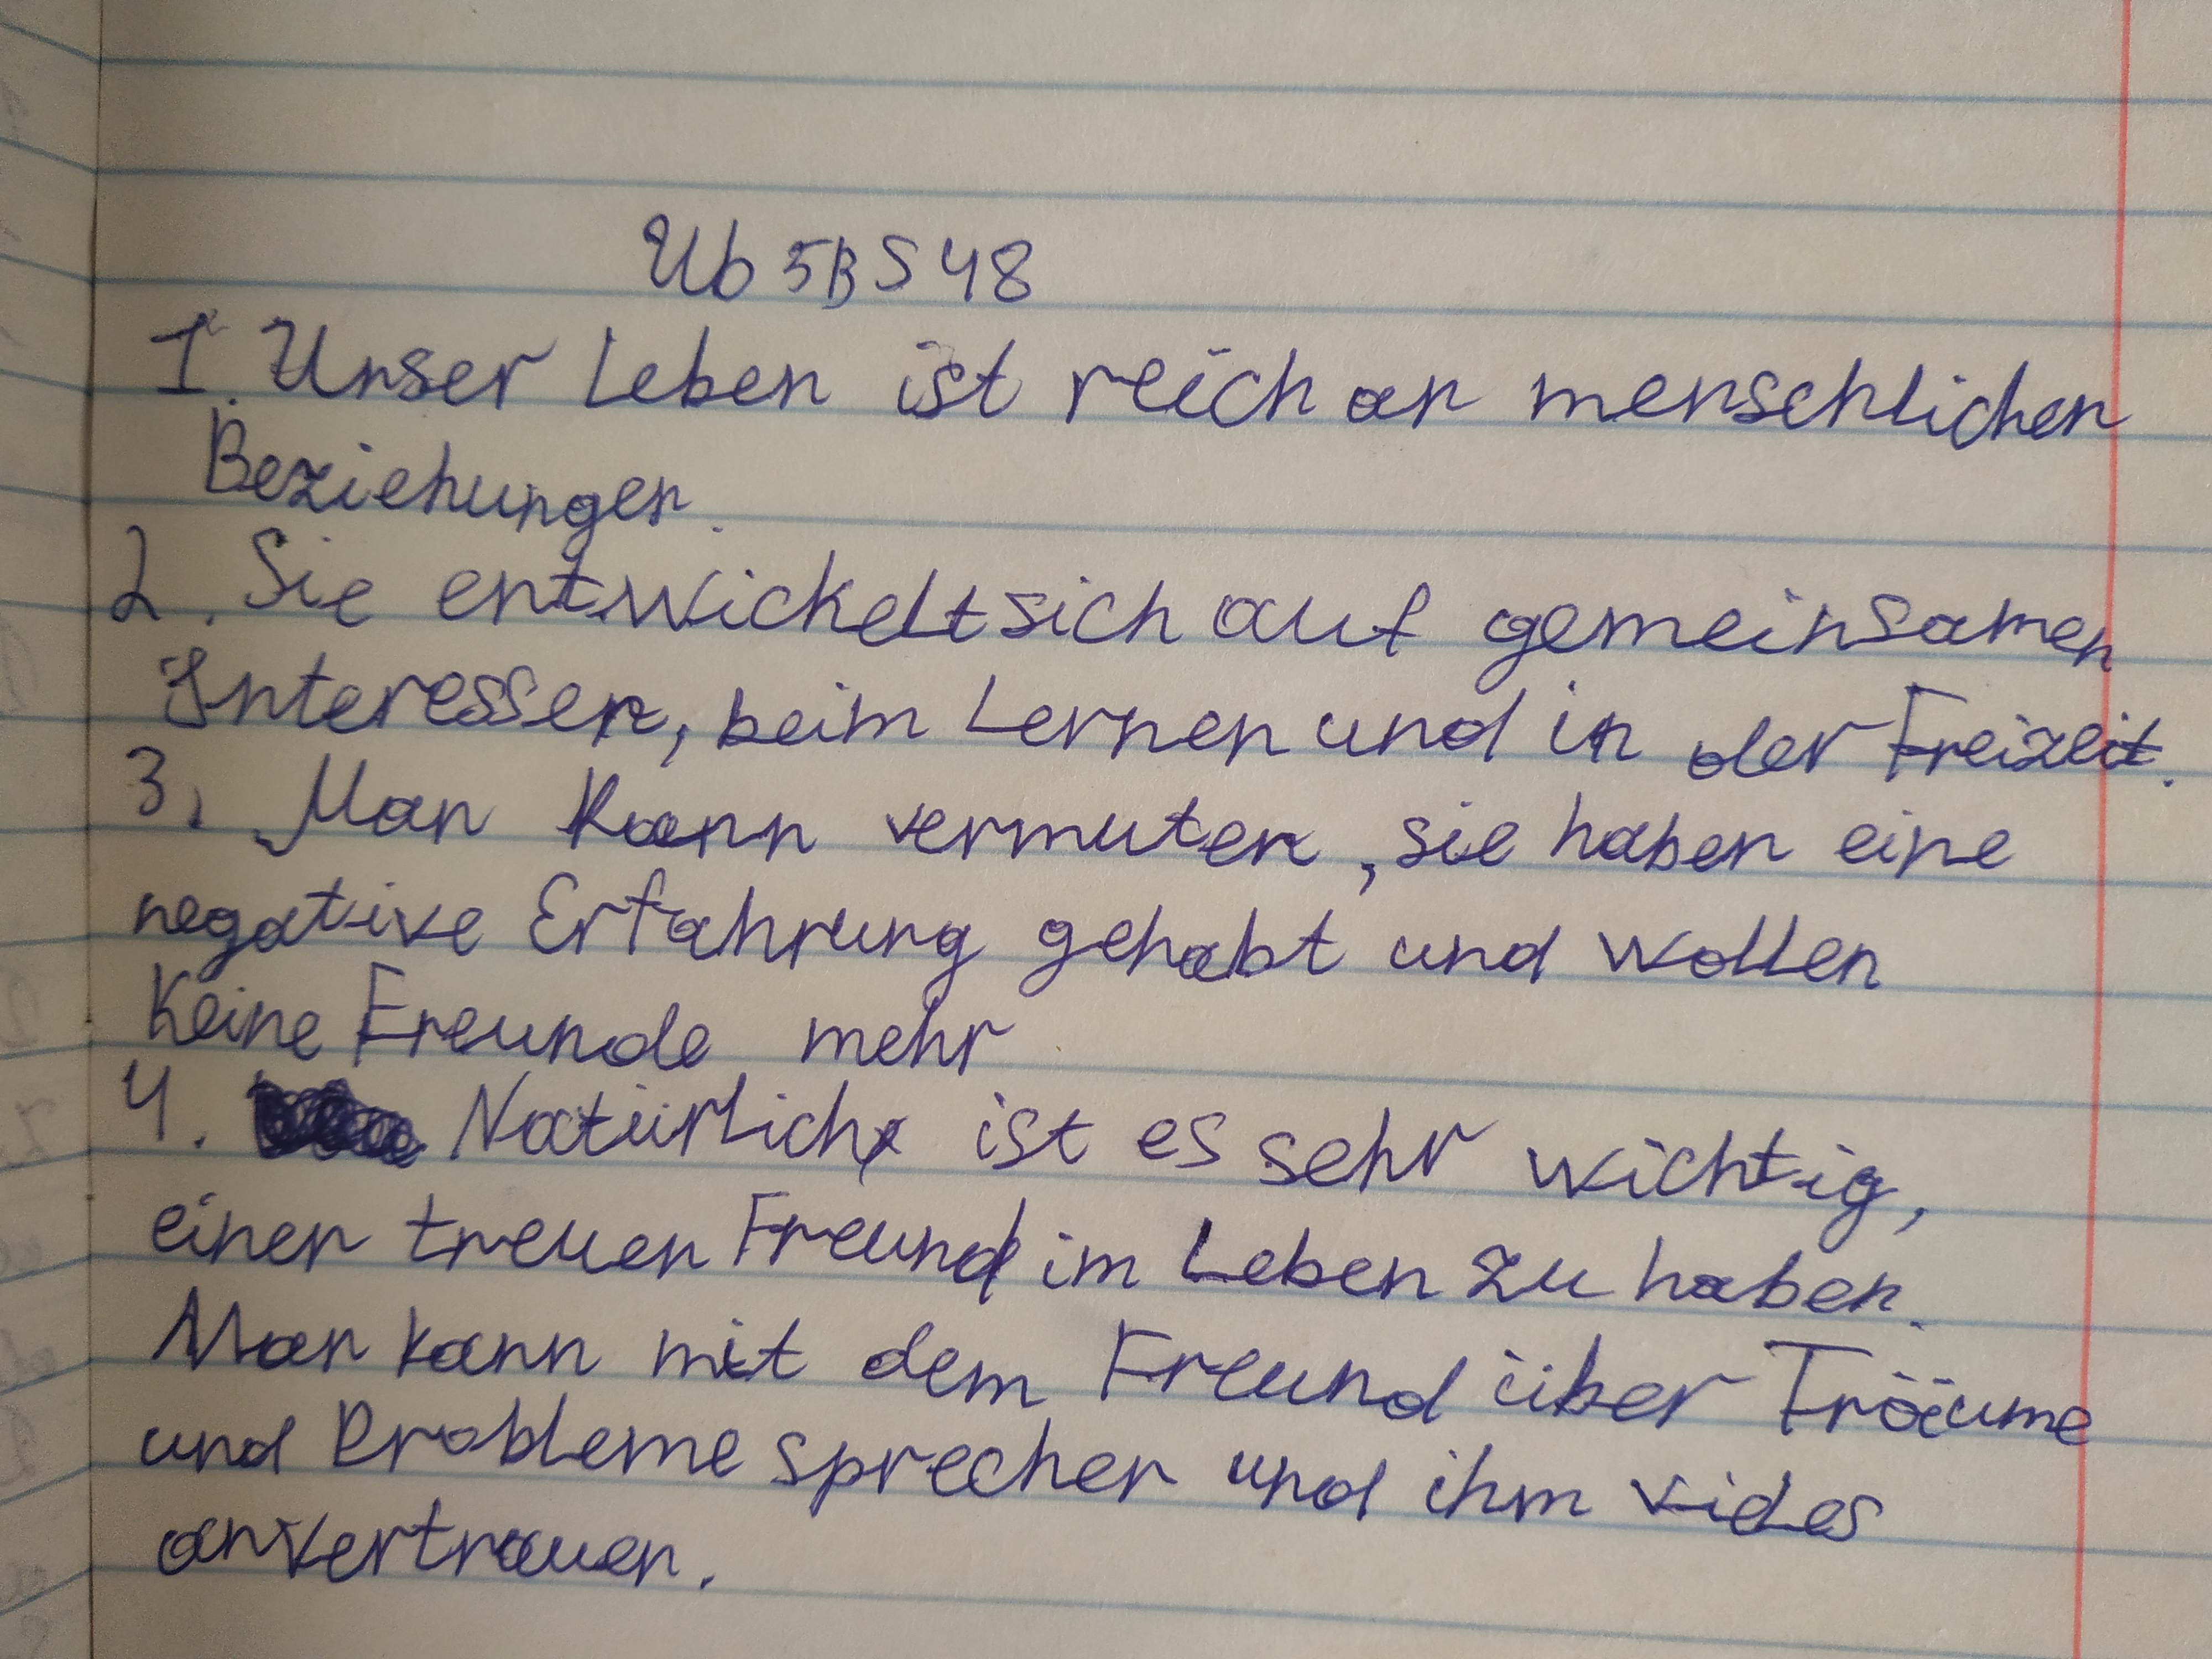 Ub 5B S 48
1. Unser Leben ist reich an menschlichen
Beziehungen.
2. Sie entwickelt sich auf gemeinsamen
Interessen, beim Lernen und in der Freizeit.
3. Man kann vermuten, sie haben eine
negative Erfahrung gehabt und wollen
keine Freunde mehr
4. Natürlich ist es sehr wichtig,
einen treuen Freund im Leben zu haben.
Man kann mit dem Freund über Träume
und Probleme sprechen und ihm vieles
anvertrauen.